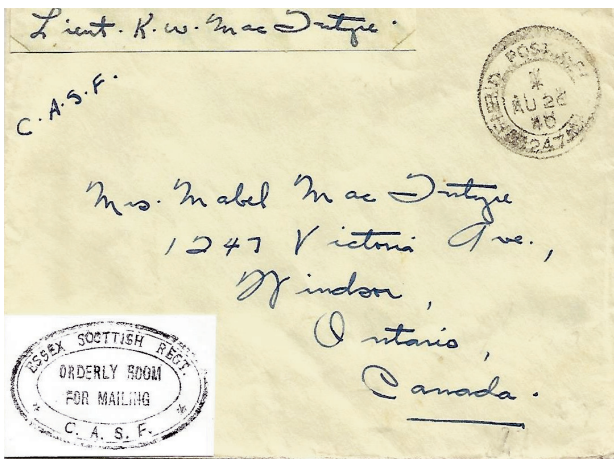 Lieut. K. W. MacIntyre.
C.A.S.F.
FIELD POST
AU 26
40
247
Mrs. Mabel MacIntyre
1247 Victoria Ave.,
Windsor,
Ontario,
Canada.
ESSEX SCOTTISH REGT.
ORDERLY ROOM
FOR MAILING
* C. A. S. F. *